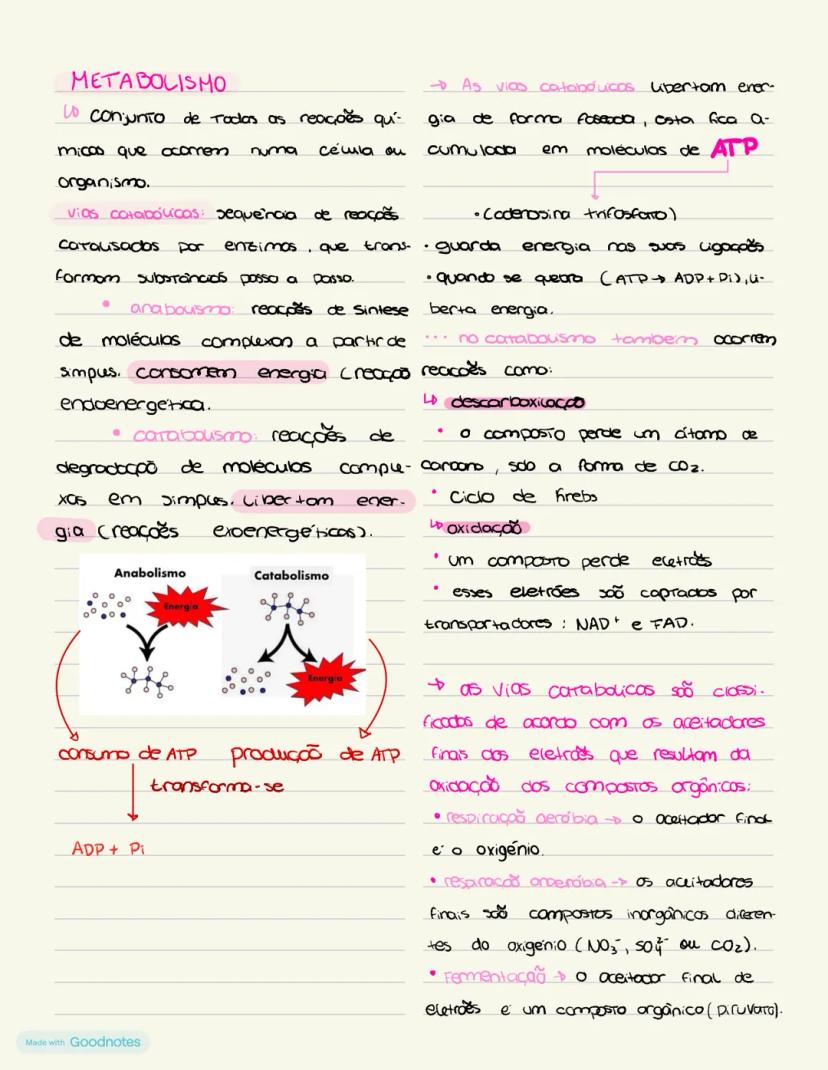 METABOLISMO
↳ conjunto de todas as reações quí-
micas que ocorrem numa célula ou
organismo.
vias catabólicas: sequência de reações
catalisadas por enzimas, que trans-
formam substâncias passo a passo.
• anabolismo: reações de síntese
de moléculas complexas a partir de
simples. consomem energia (reação
endoenergética.
• catabolismo: reações de
degradação de moléculas comple-
xas em simples. Libertam ener-
gia (reações exoenergéticas).
Anabolismo
Energia
Catabolismo
Energia
consumo de ATP produção de ATP
transforma-se
ADP + Pi
→ As vias catabólicas libertam ener-
gia de forma faseada, esta fica a-
cumulada em moléculas de ATP
• (adenosina trifosfato)
• guarda energia nas suas ligações
• quando se quebra (ATP → ADP + Pi), li-
berta energia.
... no catabolismo também ocorrem
reações como:
↳ descarboxilação
• o composto perde um átomo de
carbono, sob a forma de CO₂.
• Ciclo de Krebs
↳ oxidação
• um composto perde eletrões
• esses eletrões são captados por
transportadores: NAD⁺ e FAD.
→ as vias catabolicas são classi-
ficadas de acordo com os aceitadores
finais dos eletrões que resultam da
oxidação dos compostos orgânicos:
• respiração aeróbia → o aceitador final
é o oxigénio.
• respiração anaeróbia → os aceitadores
finais são compostos inorgânicos diferen-
tes do oxigénio (NO₃⁻, SO₄²⁻ ou CO₂).
• Fermentação → o aceitador final de
eletrões é um composto orgânico (piruvato).
Made with Goodnotes